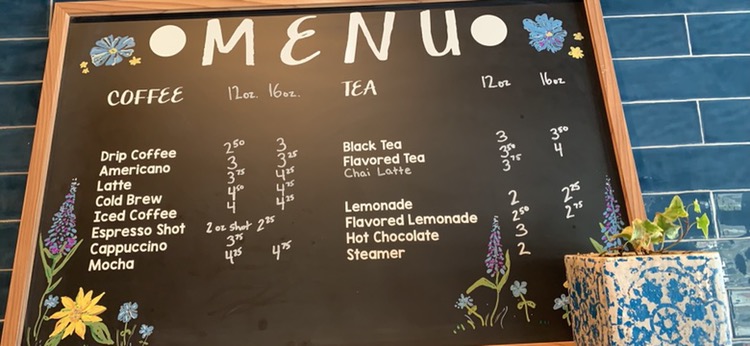 MENU
COFFEE 12oz. 16oz.
Drip Coffee 2⁵⁰ 3
Americano 3 3²⁵
Latte 3⁷⁵ 4²⁵
Cold Brew 4⁵⁰ 4⁷⁵
Iced Coffee 4 4²⁵
Espresso Shot 2oz shot 2²⁵
Cappuccino 3⁷⁵
Mocha 4²⁵ 4⁷⁵
TEA 12oz 16oz.
Black Tea 3 3⁵⁰
Flavored Tea 3⁵⁰ 4
Chai Latte 3⁷⁵
Lemonade 2 2²⁵
Flavored Lemonade 2⁵⁰ 2⁷⁵
Hot Chocolate 3
Steamer 2